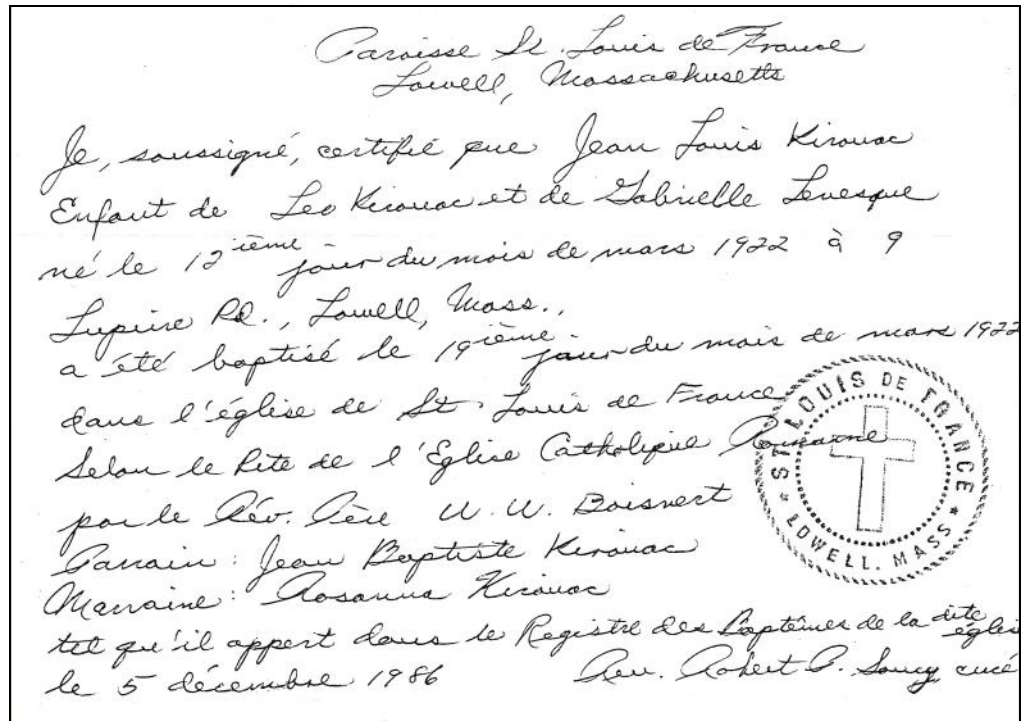 Paroisse St. Louis de France
Lowell, Massachusetts
Je, soussigné, certifie que Jean Louis Kirouac
Enfant de Leo Kirouac et de Gabrielle Levesque
né le 12ième jour du mois de mars 1922 à 9
Lupine Rd., Lowell, Mass.,
a été baptisé le 19ième jour du mois de mars 1922
dans l'église de St. Louis de France
Selon le Rite de l'Eglise Catholique Romaine
par le Rév. Père W. W. Boisvert
Parrain: Jean Baptiste Kirouac
Marraine: Rosanna Kirouac
tel qu'il appert dans le Registre des Baptêmes de la dite église
le 5 décembre 1986 Rev. Robert P. Soucy curé
ST LOUIS DE FRANCE
* LOWELL. MASS *